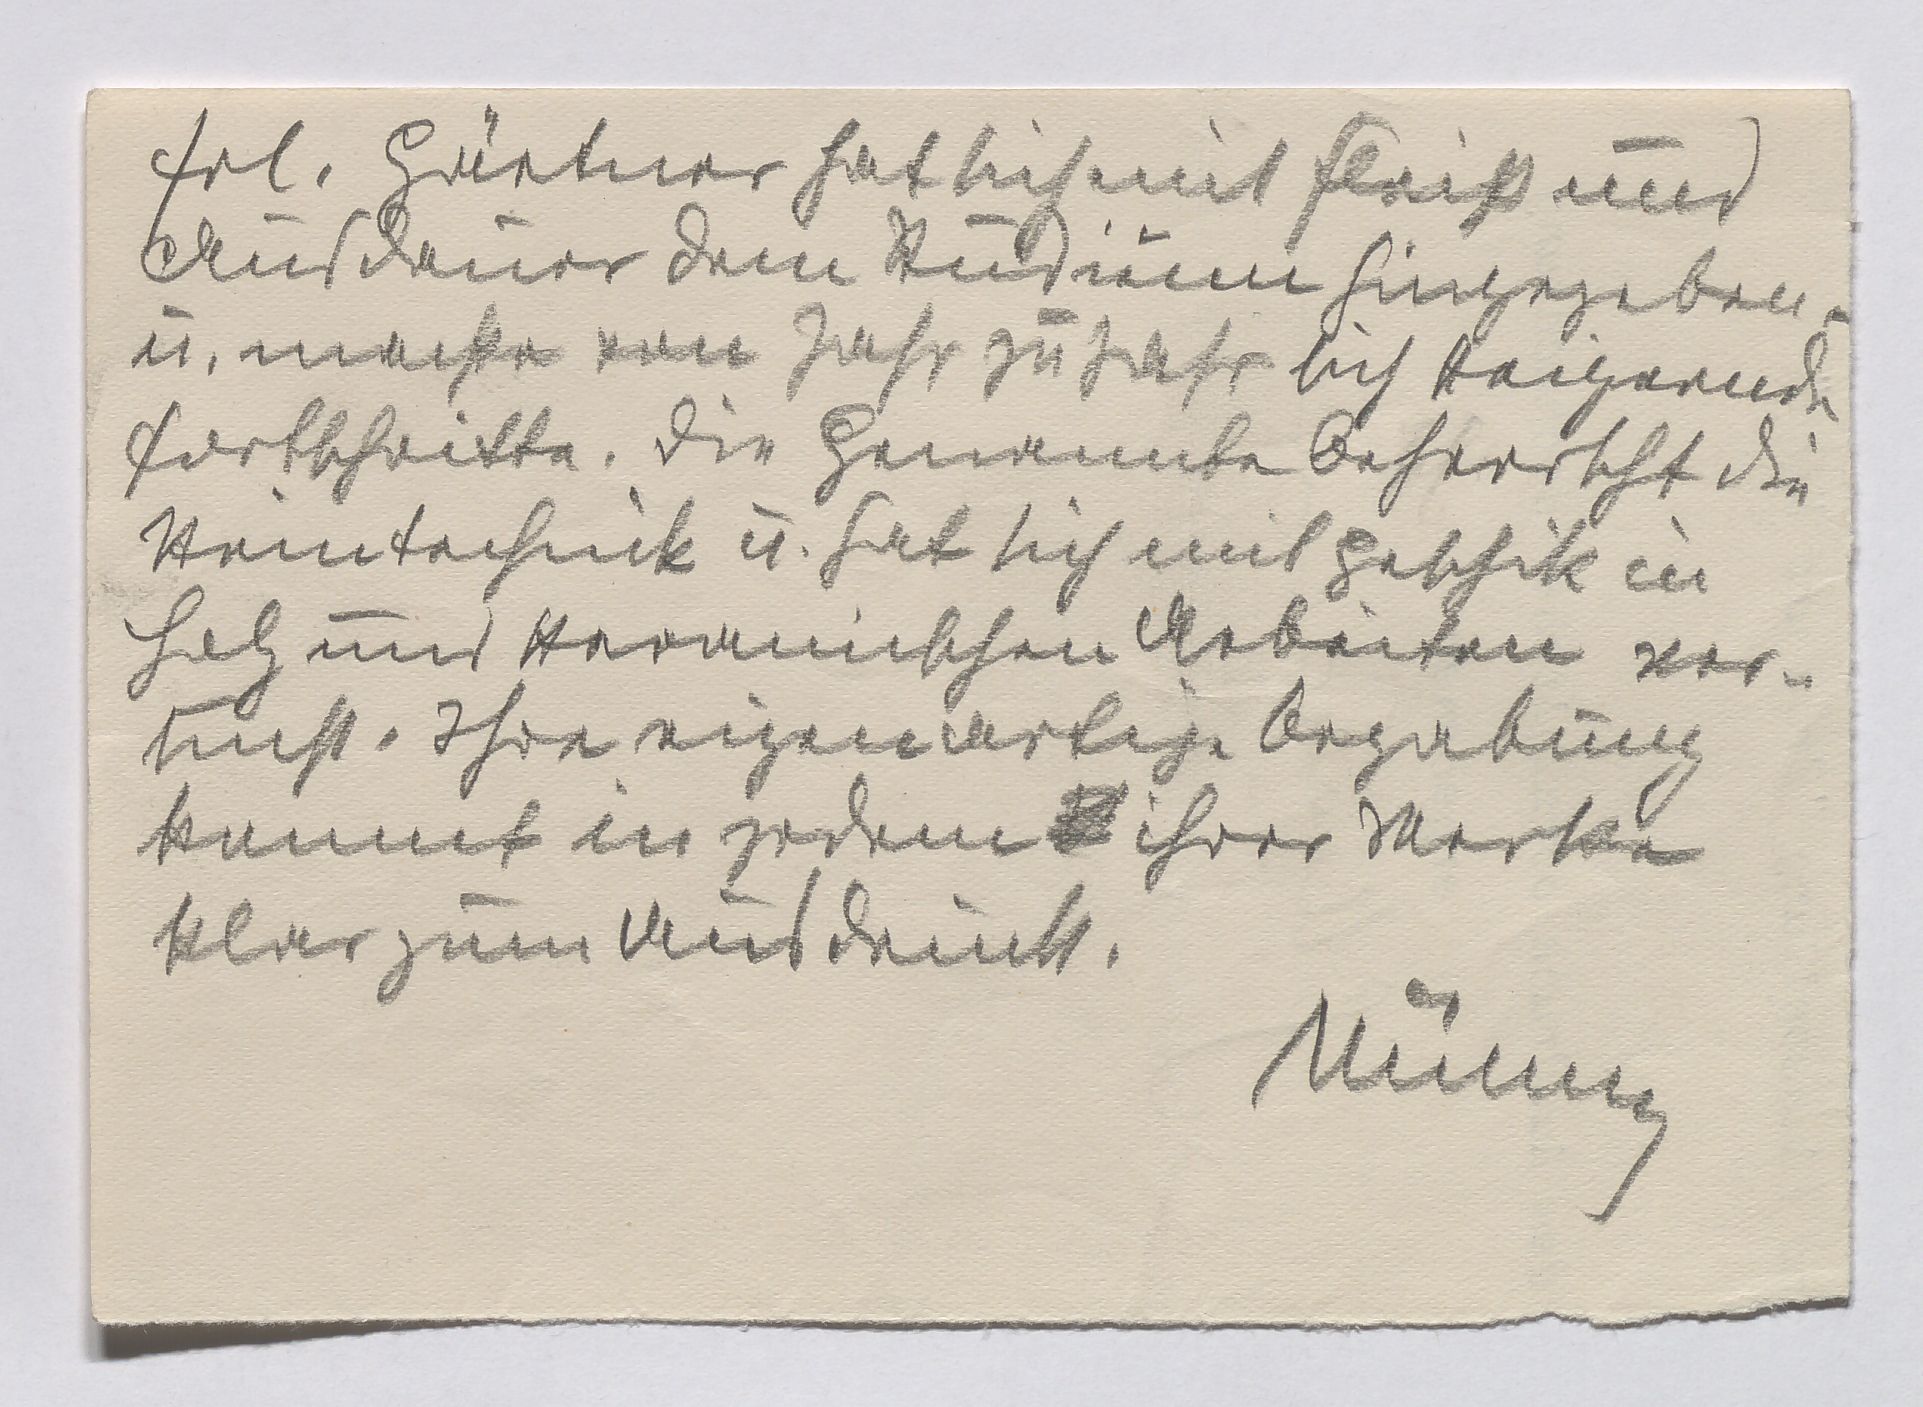 Frl. Gärtner hat sich mit Fleiß und
Ausdauer dem Studium hingegeben
u. machte von Jahr zu Jahr sich steigernde
Fortschritte. Die Genannte beherrscht die
Steintechnik u. hat sich mit Geschik in
Holz und keramischen Arbeiten ver-
sucht. Ihre eigenartige Begabung
kommt in jedem ihrer Werke
klar zum Ausdruck.